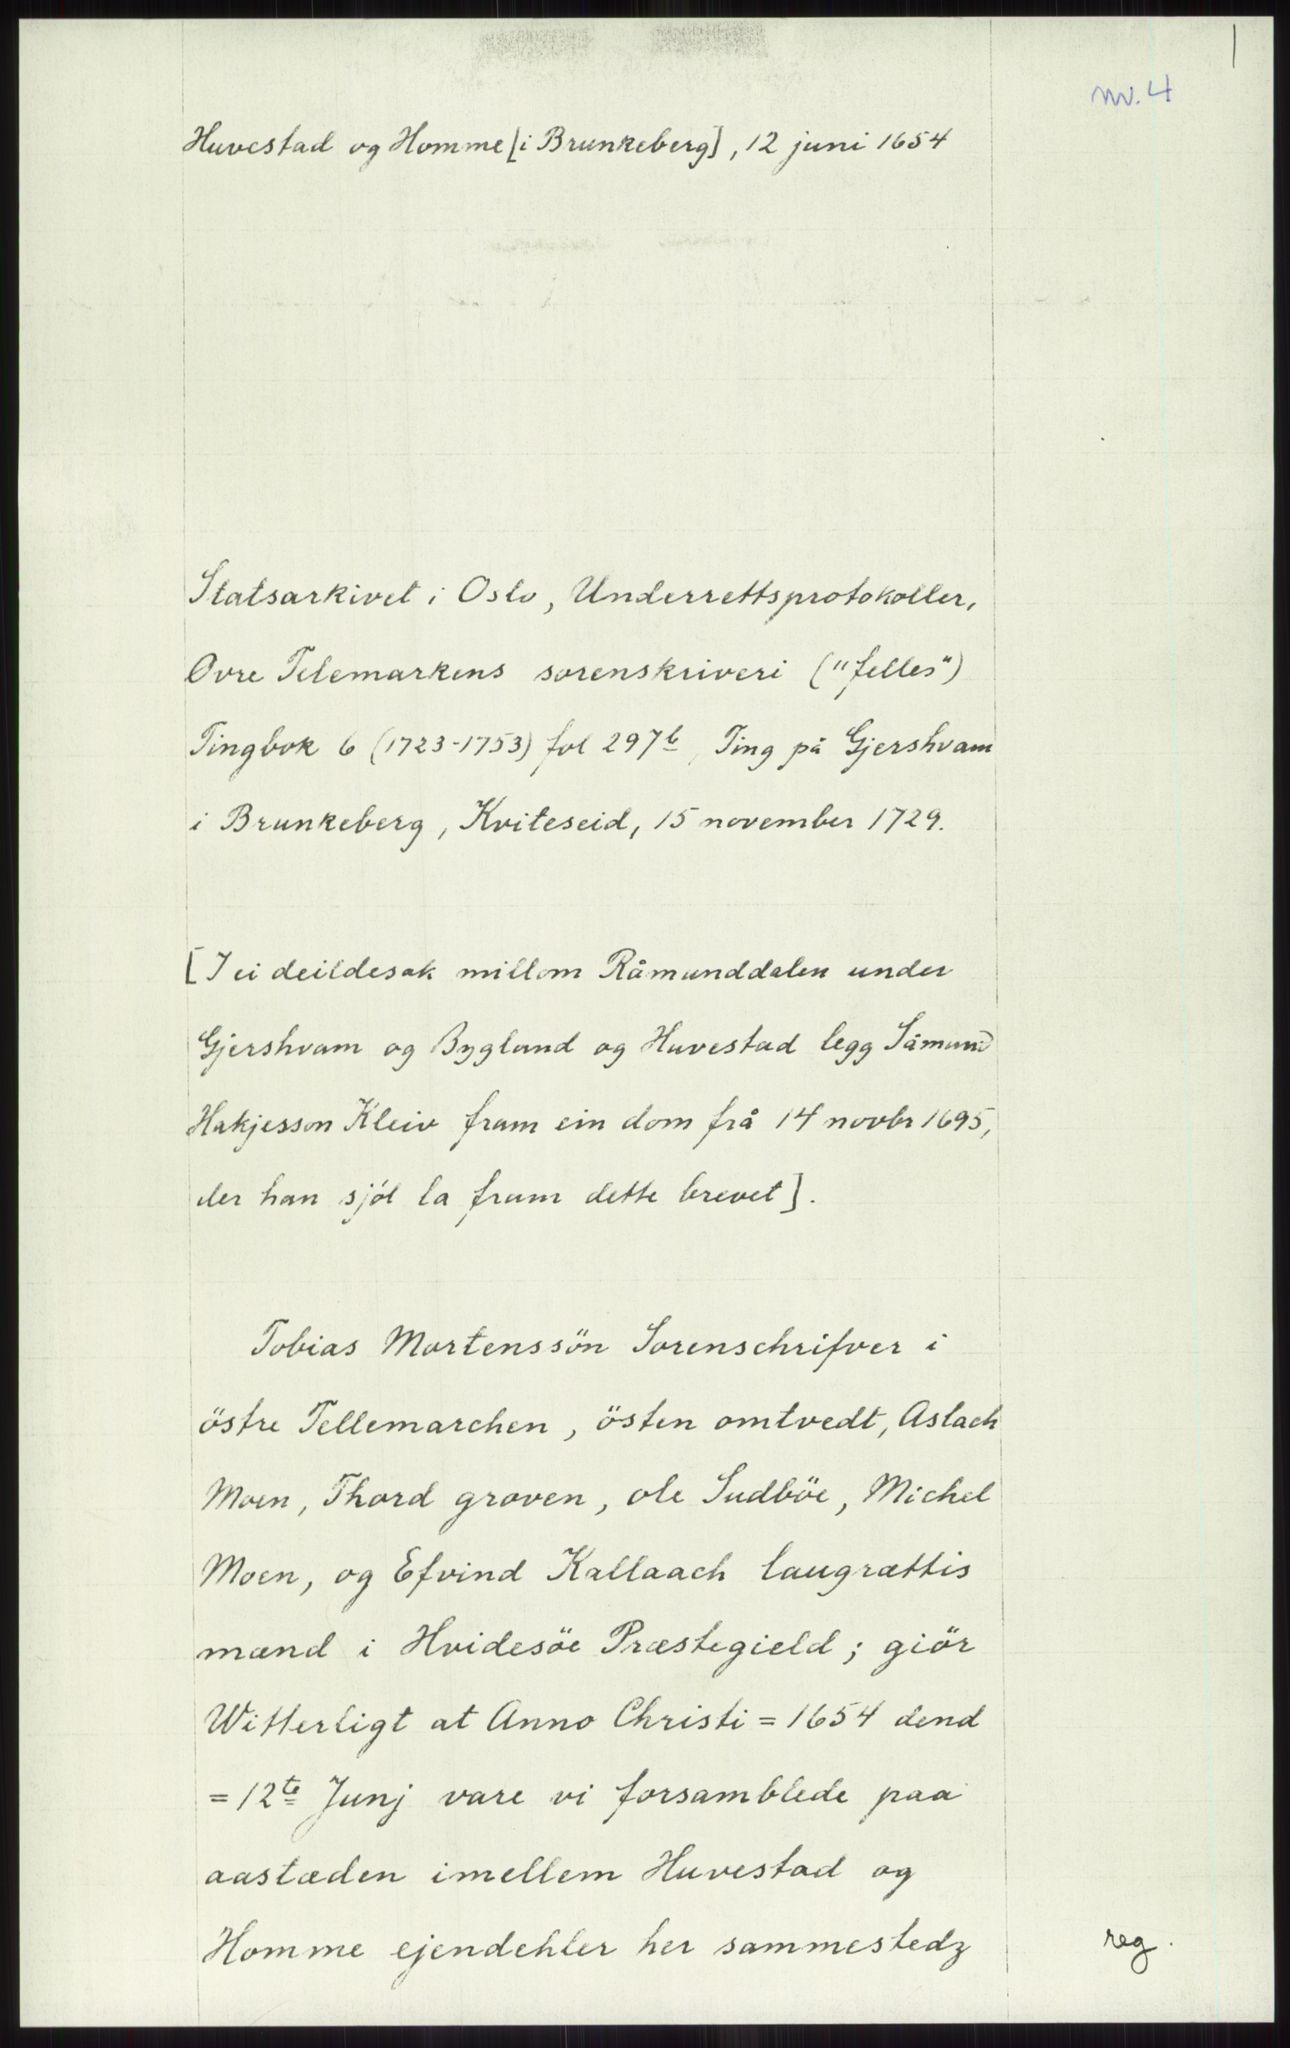 nr. 4
Huvestad og Homme [i Brunkeberg], 12 juni 1654
Statsarkivet i Oslo, Underrettsprotokoller,
Øvre Telemarkens sorenskriveri ("felles")
Tingbok 6 (1723-1753) fol 297b, Ting på Gjershvam
i Brunkeberg, Kviteseid, 15 november 1729.
[I ei deildesak millom Råmunddalen under
Gjershvam og Bygland og Huvestad legg Såmund
Hakjesson Kleiv fram ein dom frå 14 novbr 1695,
der han sjøl la fram dette brevet].
Tobias Mortenssön Sorenschrifver i
östre Tellemarchen, östen omtvedt, Aslach
Moen, Thord groven, ole Sudböe, Michel
Moen, og Efvind Kallaach laugrættis
mænd i Hvidesöe Præstegield; giör
Witterligt at Anno Christi = 1654 dend
= 12te Junj vare vi forsamblede paa
aastæden imellem Huvestad og
Homme ejendehler her sammestedz
reg.